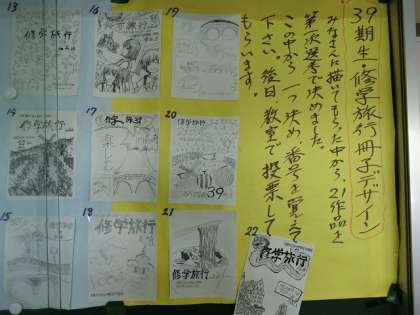 39期生・修学旅行冊子デザイン
みなさんに描いてもらった中から、21作品を
第一次選考で決めました。
この中から一つ決め、番号を覚えて
下さい。後日教室で投票して
もらいます。
13
修学旅行
16
19
14
修学旅行
17
修学旅行
20
修学旅行
39
15
18
修学旅行
21
修学旅行
22
修学旅行